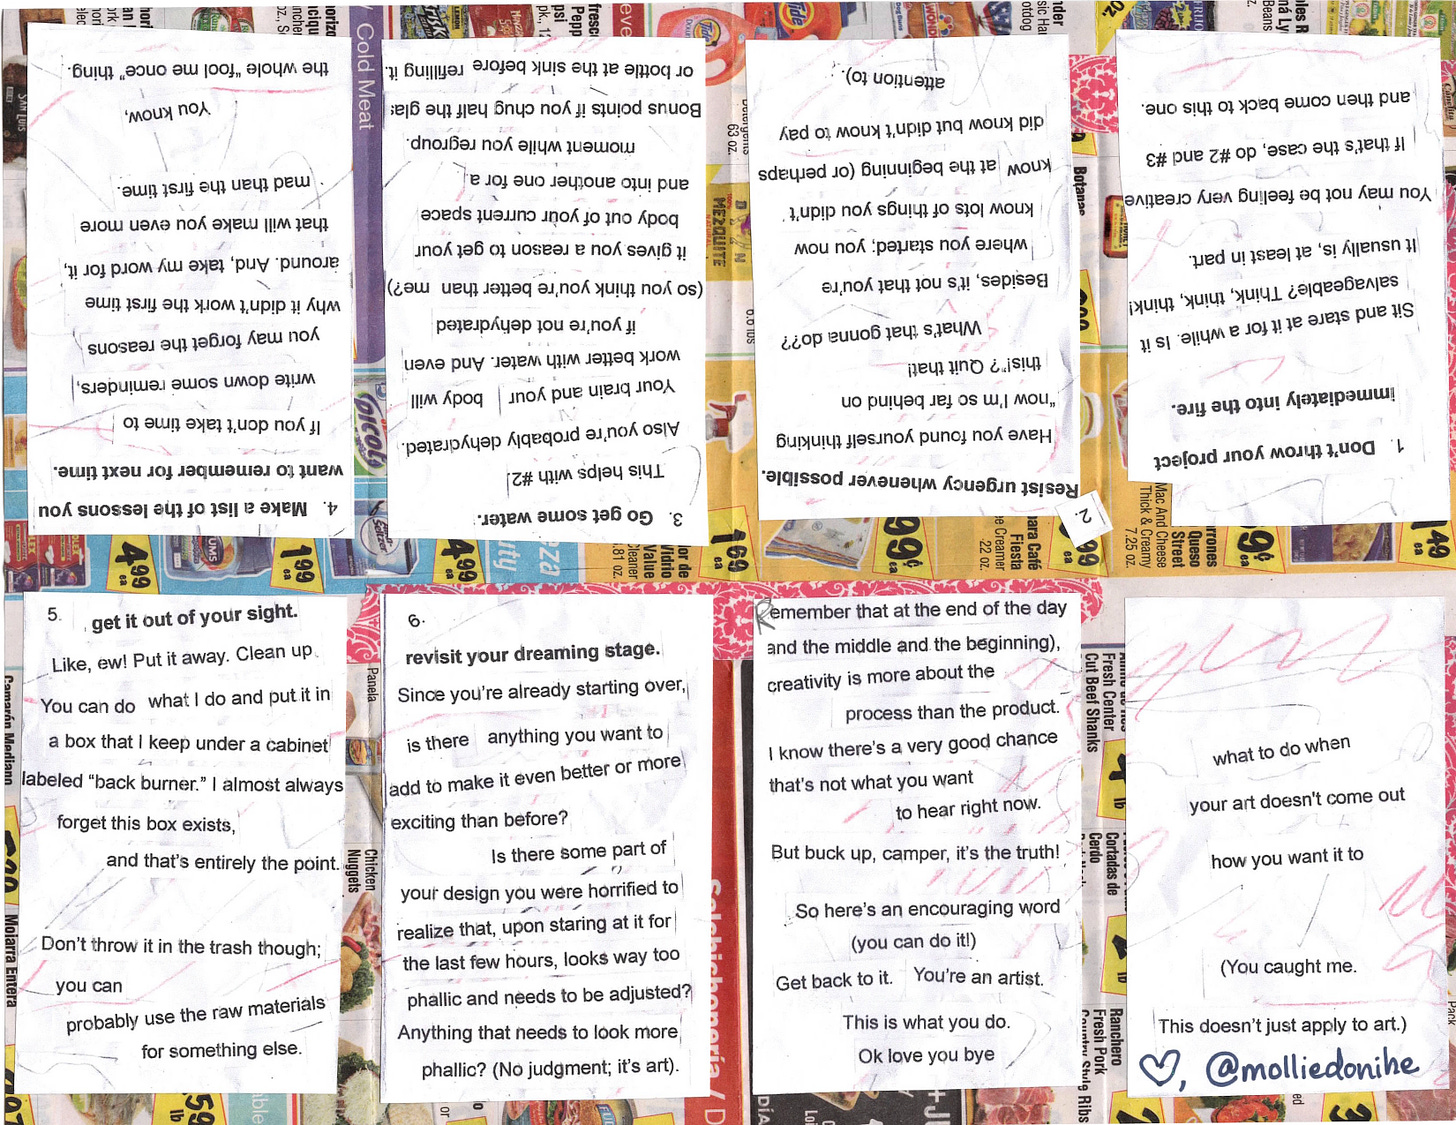 what to do when
your art doesn't come out
how you want it to
(You caught me.
This doesn't just apply to art.)
♡, @molliedonihe
1. Don't throw your project
immediately into the fire.
Sit and stare at it for a while. Is it
salvageable? Think, think, think!
It usually is, at least in part.
You may not be feeling very creative
If that's the case, do #2 and #3
and then come back to this one.
2.
Resist urgency whenever possible.
Have you found yourself thinking
"now I'm so far behind on
this!"? Quit that!
What's that gonna do??
Besides, it's not that you're
where you started; you now
know lots of things you didn't
know at the beginning (or perhaps
did know but didn't know to pay
attention to).
3. Go get some water.
This helps with #2
Also you're probably dehydrated.
Your brain and your body will
work better with water. And even
if you're not dehydrated
(so you think you're better than me?)
it gives you a reason to get your
body out of your current space
and into another one for a
moment while you regroup.
Bonus points if you chug half the glas
or bottle at the sink before refilling it.
4. Make a list of the lessons you
want to remember for next time.
If you don't take time to
write down some reminders,
you may forget the reasons
why it didn't work the first time
around. And, take my word for it,
that will make you even more
mad than the first time.
You know,
the whole "fool me once" thing.
5. get it out of your sight.
Like, ew! Put it away. Clean up.
You can do what I do and put it in
a box that I keep under a cabinet
labeled "back burner." I almost always
forget this box exists,
and that's entirely the point.
Don't throw it in the trash though;
you can
probably use the raw materials
for something else.
6.
revisit your dreaming stage.
Since you're already starting over,
is there anything you want to
add to make it even better or more
exciting than before?
Is there some part of
your design you were horrified to
realize that, upon staring at it for
the last few hours, looks way too
phallic and needs to be adjusted?
Anything that needs to look more
phallic? (No judgment; it's art).
Remember that at the end of the day
and the middle and the beginning),
creativity is more about the
process than the product.
I know there's a very good chance
that's not what you want
to hear right now.
But buck up, camper, it's the truth!
So here's an encouraging word
(you can do it!)
Get back to it. You're an artist.
This is what you do.
Ok love you bye
Cold Meat
Tide
63 oz.
MEZQUITE
Botanas
4.99
ea
1.99
ea
4.99
ea
1.69
ea
99¢
ea
Fiesta
Queso
Street
Mac And Cheese
Thick & Creamy
7.25 oz.
1.49
ea
Camarón Mediano
Mojarra Entera
Panela
Chicken
Nuggets
Salchichonería / D
Fresh Center
Cut Beef Shanks
Cortadas de
Cerdo
Ranchero
Fresh Pork
Country Style Ribs